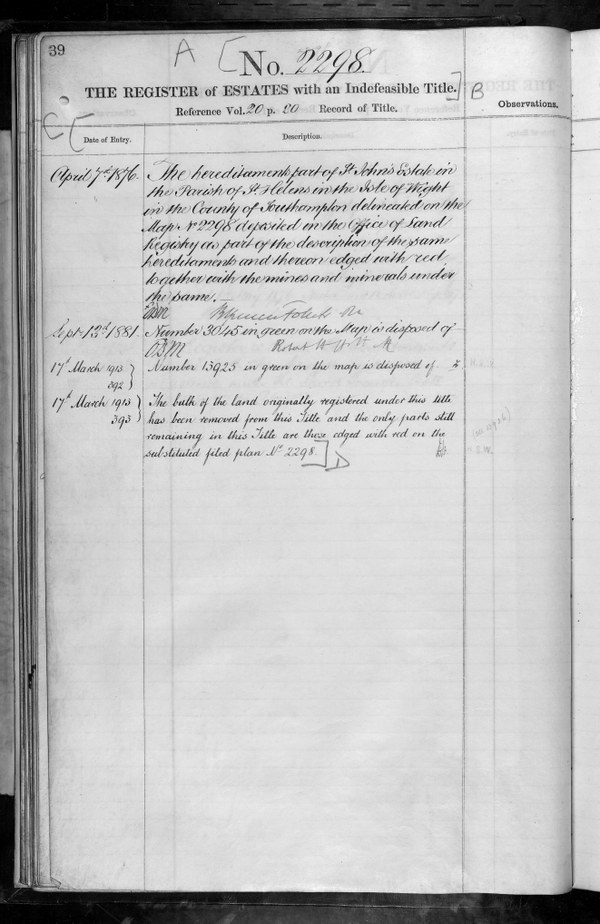 39
A [ No. 2298.
THE REGISTER of ESTATES with an Indefeasible Title. ] B
Reference Vol. 20 p. 20 Record of Title.
Observations.
C [ Date of Entry.
Description.
April 7th 1876. The hereditaments part of St. John's Estate in
the Parish of St. Helens in the Isle of Wight
in the County of Southampton delineated on the
Map No. 2298 deposited in the Office of Land
Registry as part of the description of the same
hereditaments and thereon edged with red
together with the mines and minerals under
the same.
Sept. 12th 1881. Number 3045 in green on the Map is disposed of
17th March 1913 Number 13925 in green on the map is disposed of.
392
17th March 1913 The bulk of the land originally registered under this title
393 has been removed from this Title and the only parts still
remaining in this Title are those edged with red on the
substituted filed plan No. 2298. ] D